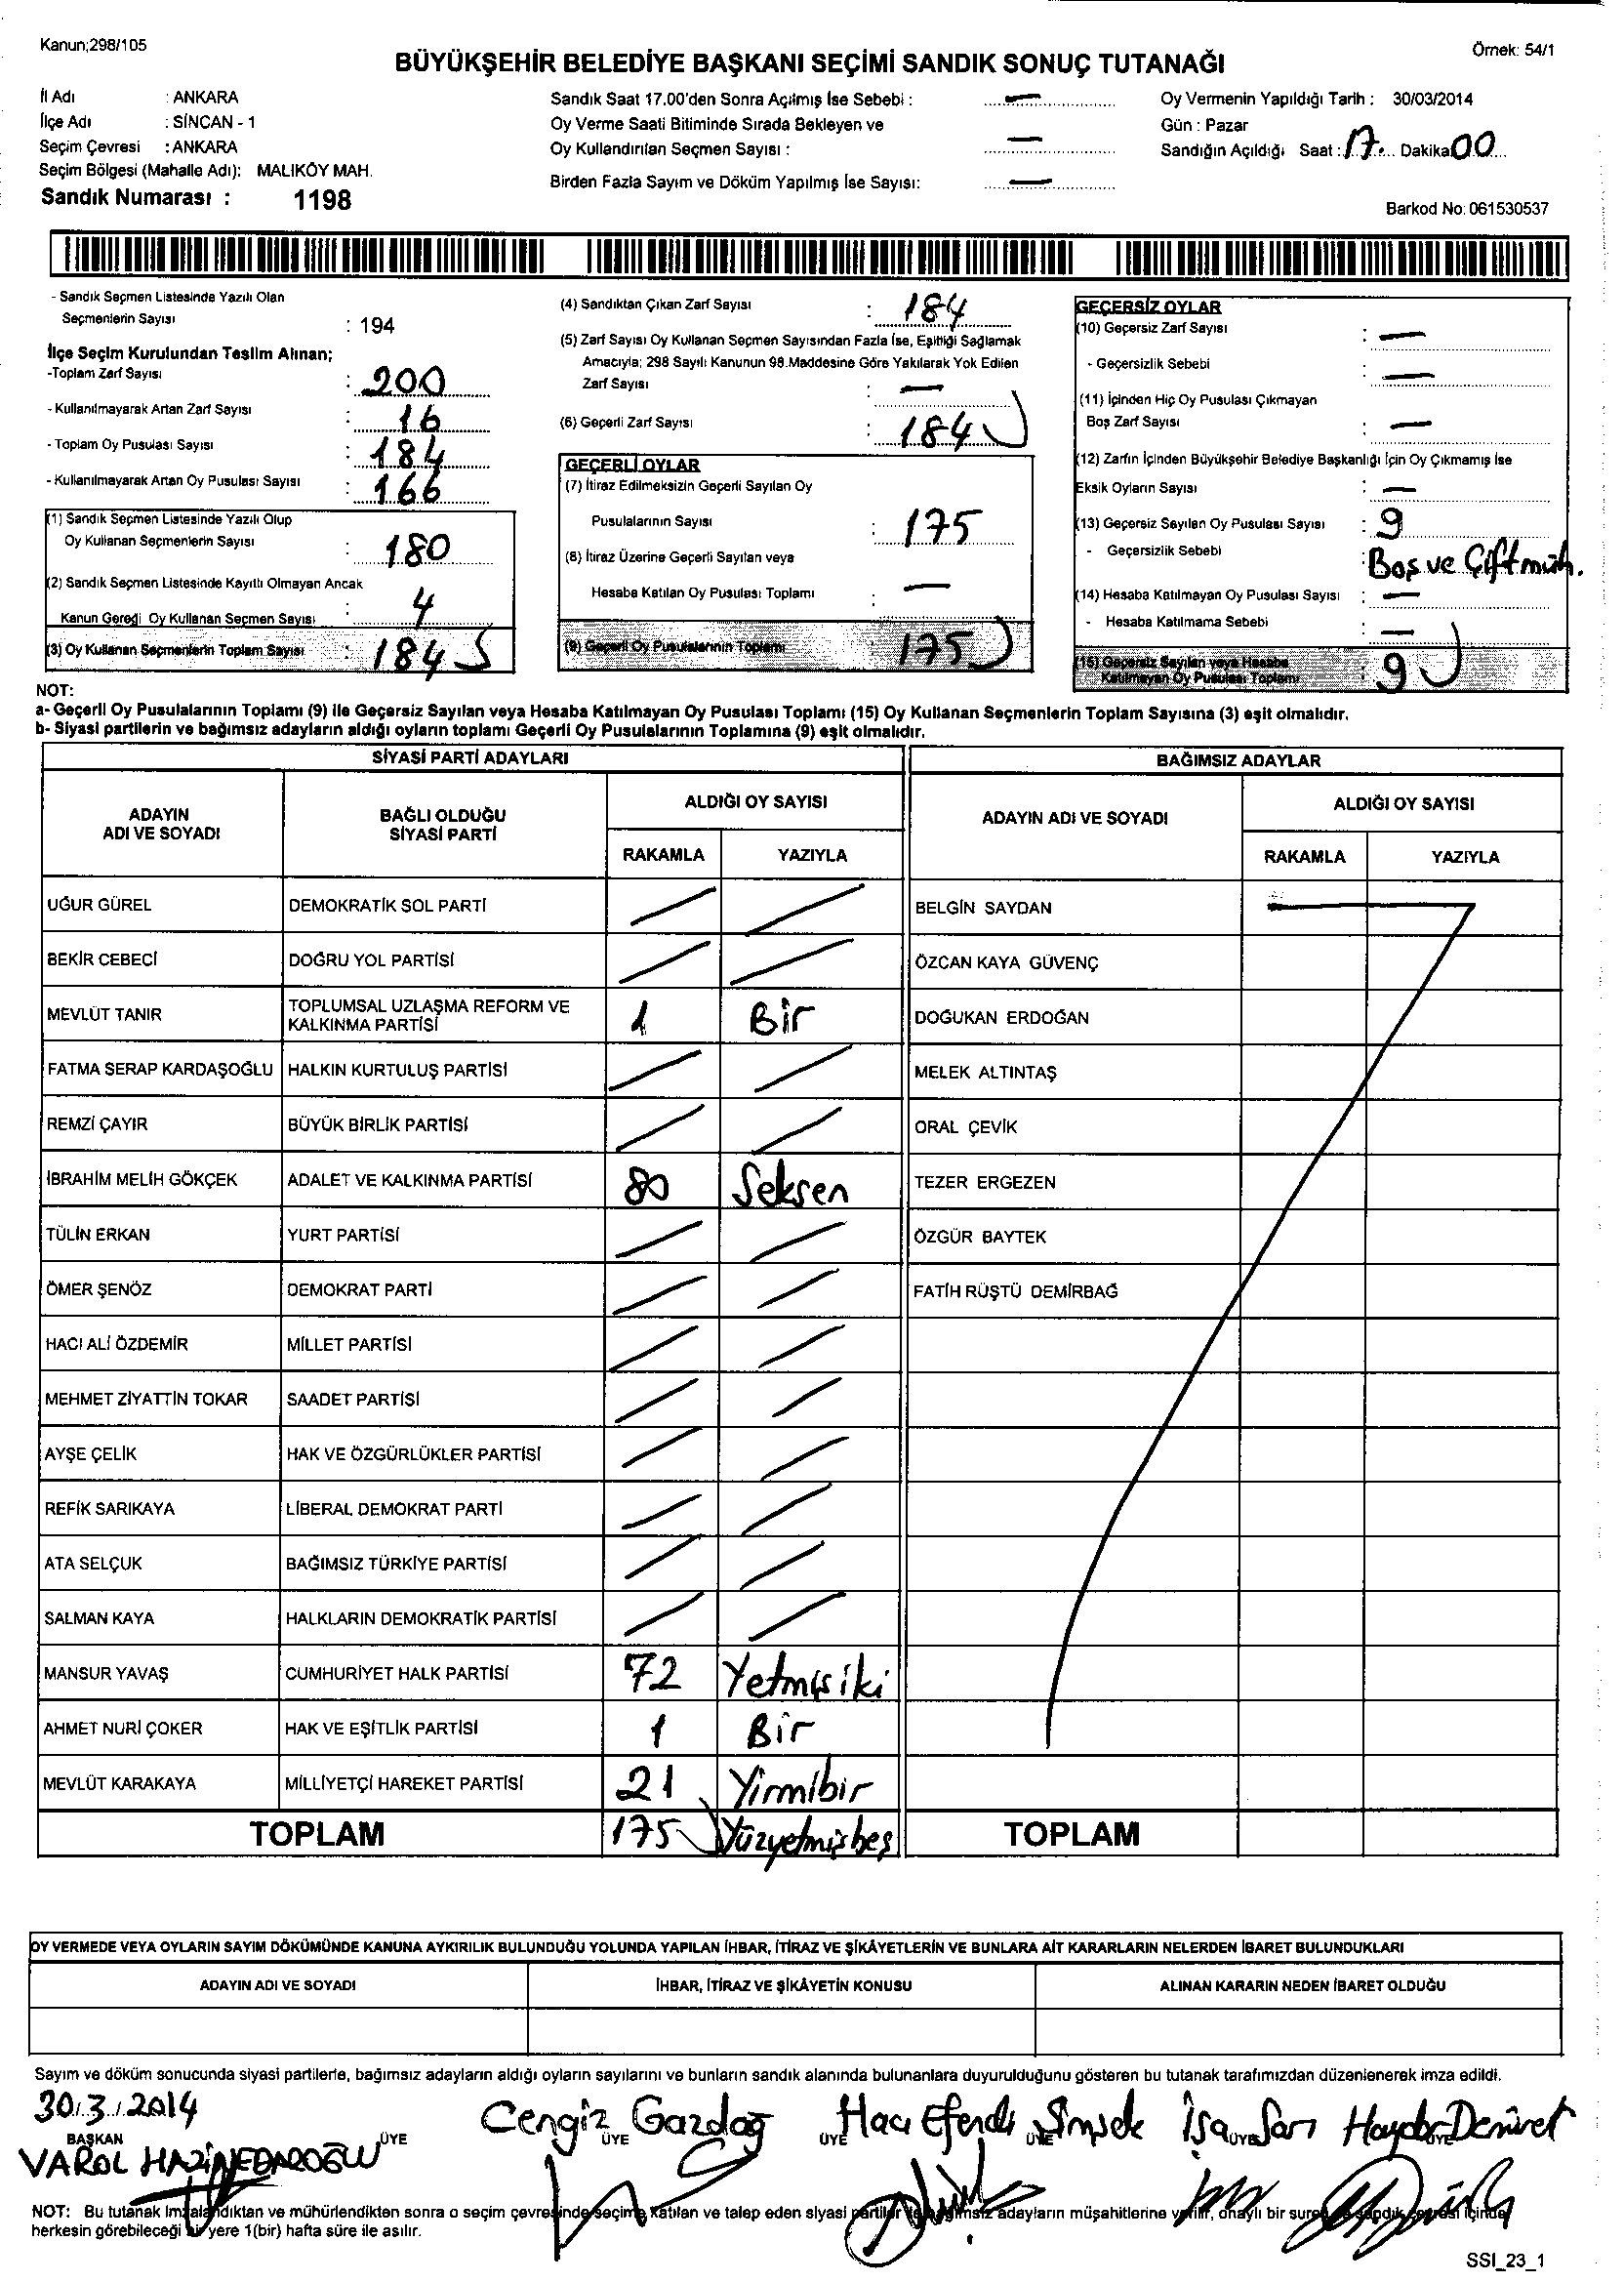 Kanun;298/105
Örnek: 54/1
BÜYÜKŞEHİR BELEDİYE BAŞKANI SEÇİMİ SANDIK SONUÇ TUTANAĞI
İl Adı : ANKARA
İlçe Adı : SİNCAN - 1
Seçim Çevresi : ANKARA
Seçim Bölgesi (Mahalle Adı): MALIKÖY MAH.
Sandık Numarası : 1198
Sandık Saat 17.00'den Sonra Açılmış İse Sebebi : —
Oy Verme Saati Bitiminde Sırada Bekleyen ve
Oy Kullandırılan Seçmen Sayısı : —
Birden Fazla Sayım ve Döküm Yapılmış İse Sayısı: —
Oy Vermenin Yapıldığı Tarih : 30/03/2014
Gün : Pazar
Sandığın Açıldığı Saat : 17 Dakika 00
Barkod No: 061530537
- Sandık Seçmen Listesinde Yazılı Olan
Seçmenlerin Sayısı : 194
İlçe Seçim Kurulundan Teslim Alınan;
-Toplam Zarf Sayısı : 200
- Kullanılmayarak Artan Zarf Sayısı : 16
- Toplam Oy Pusulası Sayısı : 184
- Kullanılmayarak Artan Oy Pusulası Sayısı : 166
(1) Sandık Seçmen Listesinde Yazılı Olup
Oy Kullanan Seçmenlerin Sayısı : 180
(2) Sandık Seçmen Listesinde Kayıtlı Olmayan Ancak
Kanun Gereği Oy Kullanan Seçmen Sayısı : 4
(3) Oy Kullanan Seçmenlerin Toplam Sayısı : 184
(4) Sandıktan Çıkan Zarf Sayısı : 184
(5) Zarf Sayısı Oy Kullanan Seçmen Sayısından Fazla İse, Eşitliği Sağlamak
Amacıyla; 298 Sayılı Kanunun 98.Maddesine Göre Yakılarak Yok Edilen
Zarf Sayısı : —
(6) Geçerli Zarf Sayısı : 184
GEÇERLİ OYLAR
(7) İtiraz Edilmeksizin Geçerli Sayılan Oy
Pusulalarının Sayısı : 175
(8) İtiraz Üzerine Geçerli Sayılan veya
Hesaba Katılan Oy Pusulası Toplamı : —
(9) Geçerli Oy Pusulalarının Toplamı 175
GEÇERSİZ OYLAR
(10) Geçersiz Zarf Sayısı : —
- Geçersizlik Sebebi : —
(11) İçinden Hiç Oy Pusulası Çıkmayan
Boş Zarf Sayısı : —
(12) Zarfın İçinden Büyükşehir Belediye Başkanlığı İçin Oy Çıkmamış İse
Eksik Oyların Sayısı : —
(13) Geçersiz Sayılan Oy Pusulası Sayısı : 9
- Geçersizlik Sebebi : Boş ve Çift müh.
(14) Hesaba Katılmayan Oy Pusulası Sayısı : —
- Hesaba Katılmama Sebebi : —
(15) Geçersiz Sayılan veya Hesaba
Katılmayan Oy Pusulası Toplamı : 9
NOT:
a- Geçerli Oy Pusulalarının Toplamı (9) ile Geçersiz Sayılan veya Hesaba Katılmayan Oy Pusulası Toplamı (15) Oy Kullanan Seçmenlerin Toplam Sayısına (3) eşit olmalıdır.
b- Siyasi partilerin ve bağımsız adayların aldığı oyların toplamı Geçerli Oy Pusulalarının Toplamına (9) eşit olmalıdır.
SİYASİ PARTİ ADAYLARI
ADAYIN ADI VE SOYADI
BAĞLI OLDUĞU SİYASİ PARTİ
ALDIĞI OY SAYISI
RAKAMLA YAZIYLA
UĞUR GÜREL DEMOKRATİK SOL PARTİ
BEKİR CEBECİ DOĞRU YOL PARTİSİ
MEVLÜT TANIR TOPLUMSAL UZLAŞMA REFORM VE KALKINMA PARTİSİ 1 Bir
FATMA SERAP KARDAŞOĞLU HALKIN KURTULUŞ PARTİSİ
REMZİ ÇAYIR BÜYÜK BİRLİK PARTİSİ
İBRAHİM MELİH GÖKÇEK ADALET VE KALKINMA PARTİSİ 80 Seksen
TÜLİN ERKAN YURT PARTİSİ
ÖMER ŞENÖZ DEMOKRAT PARTİ
HACI ALİ ÖZDEMİR MİLLET PARTİSİ
MEHMET ZİYATTİN TOKAR SAADET PARTİSİ
AYŞE ÇELİK HAK VE ÖZGÜRLÜKLER PARTİSİ
REFİK SARIKAYA LİBERAL DEMOKRAT PARTİ
ATA SELÇUK BAĞIMSIZ TÜRKİYE PARTİSİ
SALMAN KAYA HALKLARIN DEMOKRATİK PARTİSİ
MANSUR YAVAŞ CUMHURİYET HALK PARTİSİ 72 Yetmişiki
AHMET NURİ ÇOKER HAK VE EŞİTLİK PARTİSİ 1 Bir
MEVLÜT KARAKAYA MİLLİYETÇİ HAREKET PARTİSİ 21 Yirmibir
TOPLAM 175 Yüzyetmişbeş
BAĞIMSIZ ADAYLAR
ADAYIN ADI VE SOYADI
ALDIĞI OY SAYISI
RAKAMLA YAZIYLA
BELGİN SAYDAN
ÖZCAN KAYA GÜVENÇ
DOĞUKAN ERDOĞAN
MELEK ALTINTAŞ
ORAL ÇEVİK
TEZER ERGEZEN
ÖZGÜR BAYTEK
FATİH RÜŞTÜ DEMİRBAĞ
TOPLAM
OY VERMEDE VEYA OYLARIN SAYIM DÖKÜMÜNDE KANUNA AYKIRILIK BULUNDUĞU YOLUNDA YAPILAN İHBAR, İTİRAZ VE ŞİKÂYETLERİN VE BUNLARA AİT KARARLARIN NELERDEN İBARET BULUNDUKLARI
ADAYIN ADI VE SOYADI İHBAR, İTİRAZ VE ŞİKÂYETİN KONUSU ALINAN KARARIN NEDEN İBARET OLDUĞU
Sayım ve döküm sonucunda siyasi partilerle, bağımsız adayların aldığı oyların sayılarını ve bunların sandık alanında bulunanlara duyurulduğunu gösteren bu tutanak tarafımızdan düzenlenerek imza edildi.
30/3/2014
Cengiz Gazdağ Hacı Efendi Şimşek İsa Sarı Haydar Demiret
BAŞKAN ÜYE ÜYE ÜYE ÜYE ÜYE ÜYE
VAROL HAZİNEDAROĞLU
NOT: Bu tutanak imzalandıktan ve mühürlendikten sonra o seçim çevresinde seçime katılan ve talep eden siyasi partiler ile bağımsız adayların müşahitlerine verilir, onaylı bir sureti de sandık çevresi içinde
herkesin görebileceği bir yere 1(bir) hafta süre ile asılır.
SSI_23_1